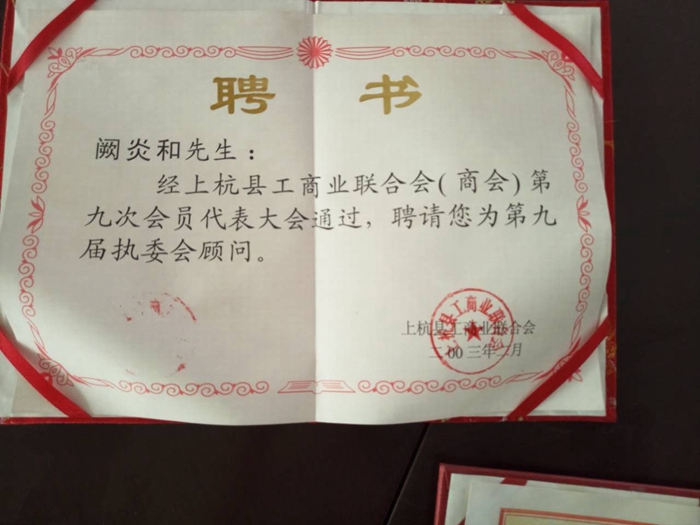 聘 书
阙炎和先生：
经上杭县工商业联合会(商会)第
九次会员代表大会通过，聘请您为第九
届执委会顾问。
上杭县工商业联合会
二00三年二月
上杭县工商业联合会